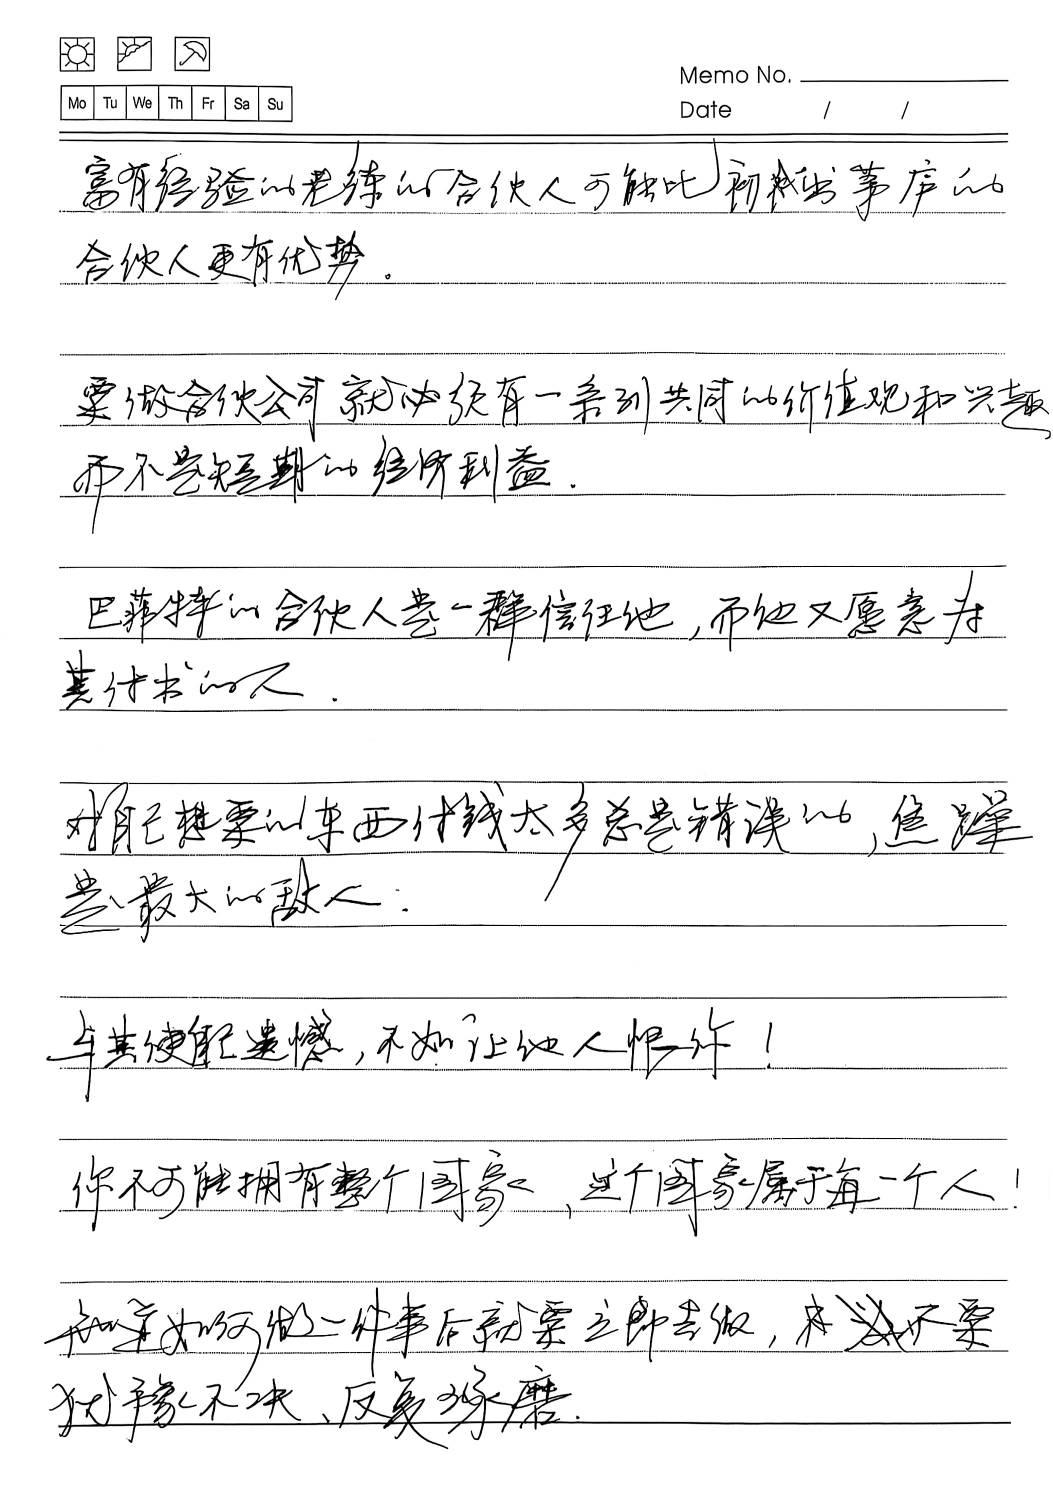 Memo No.
Mo Tu We Th Fr Sa Su
Date / /
富有经验的老练的合伙人可能比初出茅庐的
合伙人更有优势.
要做合伙公司就必须有一系列共同的价值观和兴趣
而不是短期的经济利益.
巴菲特的合伙人是一群信任他,而他又愿意为
其付出的人.
对自己想要的东西付钱太多总是错误的,焦躁
是最大的敌人.
与其使自己遗憾,不如让他人怅然!
你不可能拥有整个国家、这个国家属于每一个人!
知道如何做一件事后就要立即去做,不要
犹豫不决、反复琢磨.